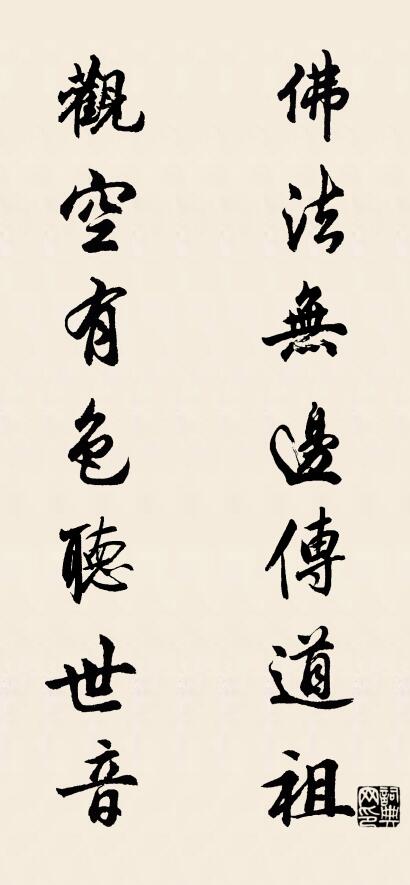 佛法無邊傳道祖
觀空有色聽世音
詞典网印